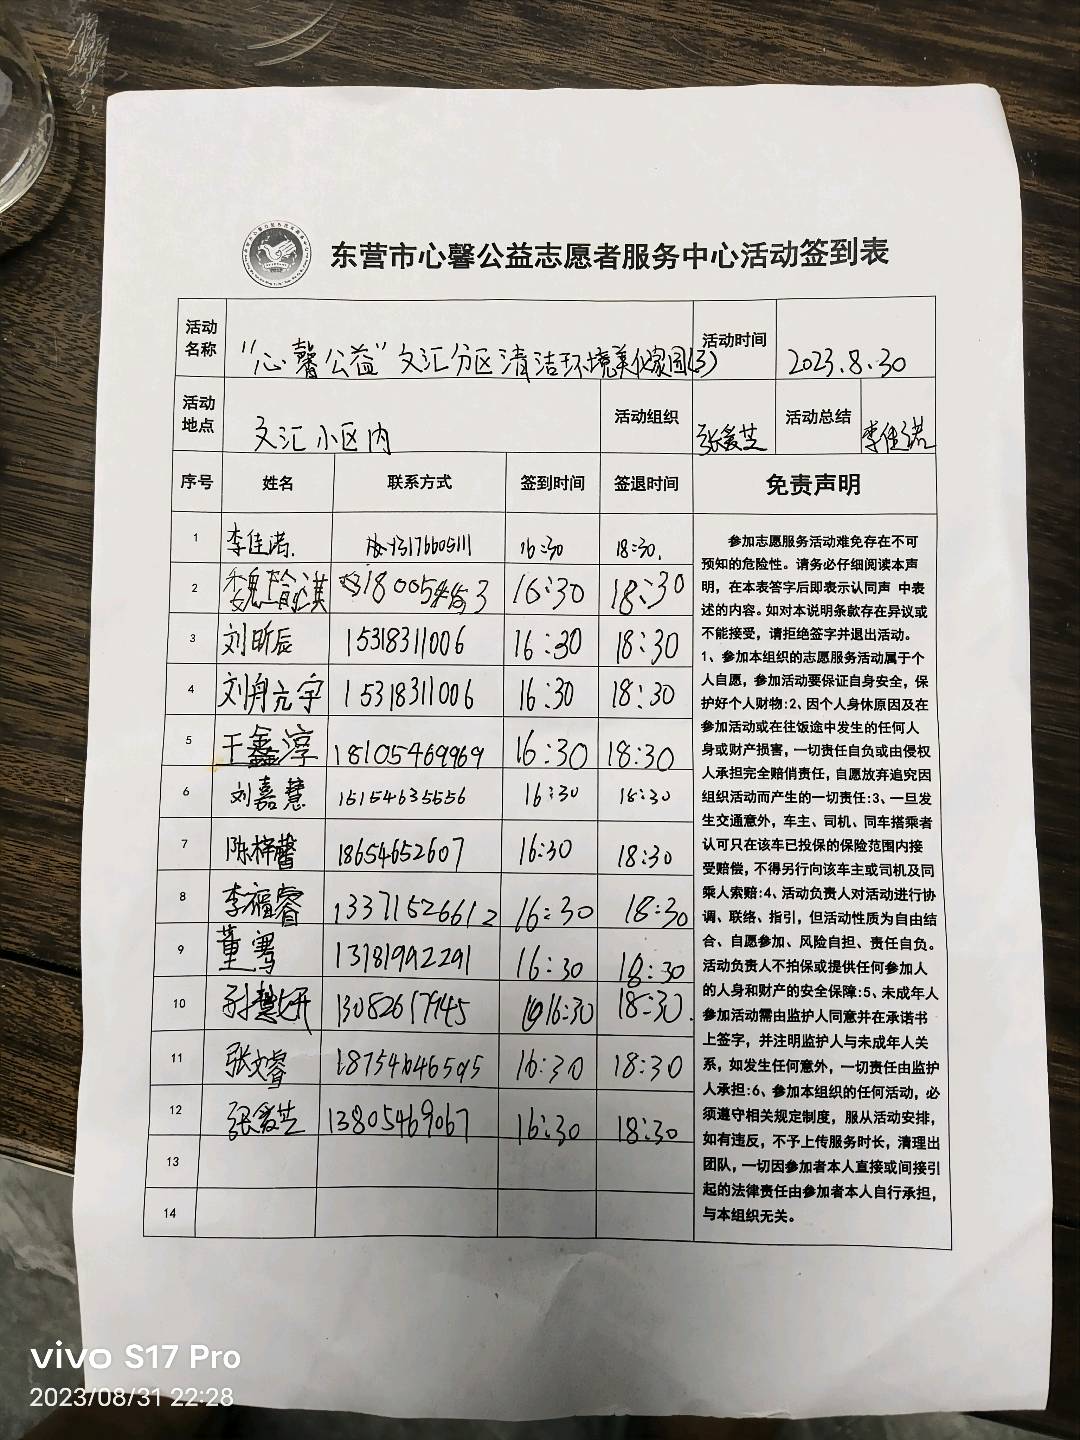 东营市心馨公益志愿者服务中心活动签到表
活动名称 “心馨公益”文汇分区清洁环境美化家园(3) 活动时间 2023.8.30
活动地点 文汇小区内 活动组织 张爱芝 活动总结 李佳诺
序号 姓名 联系方式 签到时间 签退时间 免责声明
1 李佳诺. 16:30 18:30.
2 魏瑜淇 16:30 18:30
3 刘昕辰 15318311006 16:30 18:30
4 刘舟亢宇 15318311006 16:30 18:30
5 王鑫淳 18105469969 16:30 18:30
6 刘嘉慧 15154635556 16:30 18:30
7 陈梓馨 18654652607 16:30 18:30
8 李福睿 13371526612 16:30 18:30
9 董骞 13181992291 16:30 18:30
10 16:30 18:30.
11 张文睿 16:30 18:30
12 张爱芝 13805469067 16:30 18:30
13
14
参加志愿服务活动难免存在不可
预知的危险性。请务必仔细阅读本声
明，在本表签字后即表示认同声 中表
述的内容。如对本说明条款存在异议或
不能接受，请拒绝签字并退出活动。
1、参加本组织的志愿服务活动属于个
人自愿，参加活动要保证自身安全，保
护好个人财物:2、因个人身休原因及在
参加活动或在往饭途中发生的任何人
身或财产损害，一切责任自负或由侵权
人承担完全赔俏责任，自愿放弃追究因
组织活动而产生的一切责任:3、一旦发
生交通意外，车主、司机、同车搭乘者
认可只在该车已投保的保险范围内接
受赔偿，不得另行向该车主或司机及同
乘人索赔:4、活动负责人对活动进行协
调、联络、指引，但活动性质为自由结
合、自愿参加、风险自担、责任自负。
活动负责人不拍保或提供任何参加人
的人身和财产的安全保障:5、未成年人
参加活动需由监护人同意并在承诺书
上签字，并注明监护人与未成年人关
系，如发生任何意外，一切责任由监护
人承担:6、参加本组织的任何活动，必
须遵守相关规定制度，服从活动安排，
如有违反，不予上传服务时长，清理出
团队，一切因参加者本人直接或间接引
起的法律责任由参加者本人自行承担，
与本组织无关。
vivo S17 Pro
2023/08/31 22:28